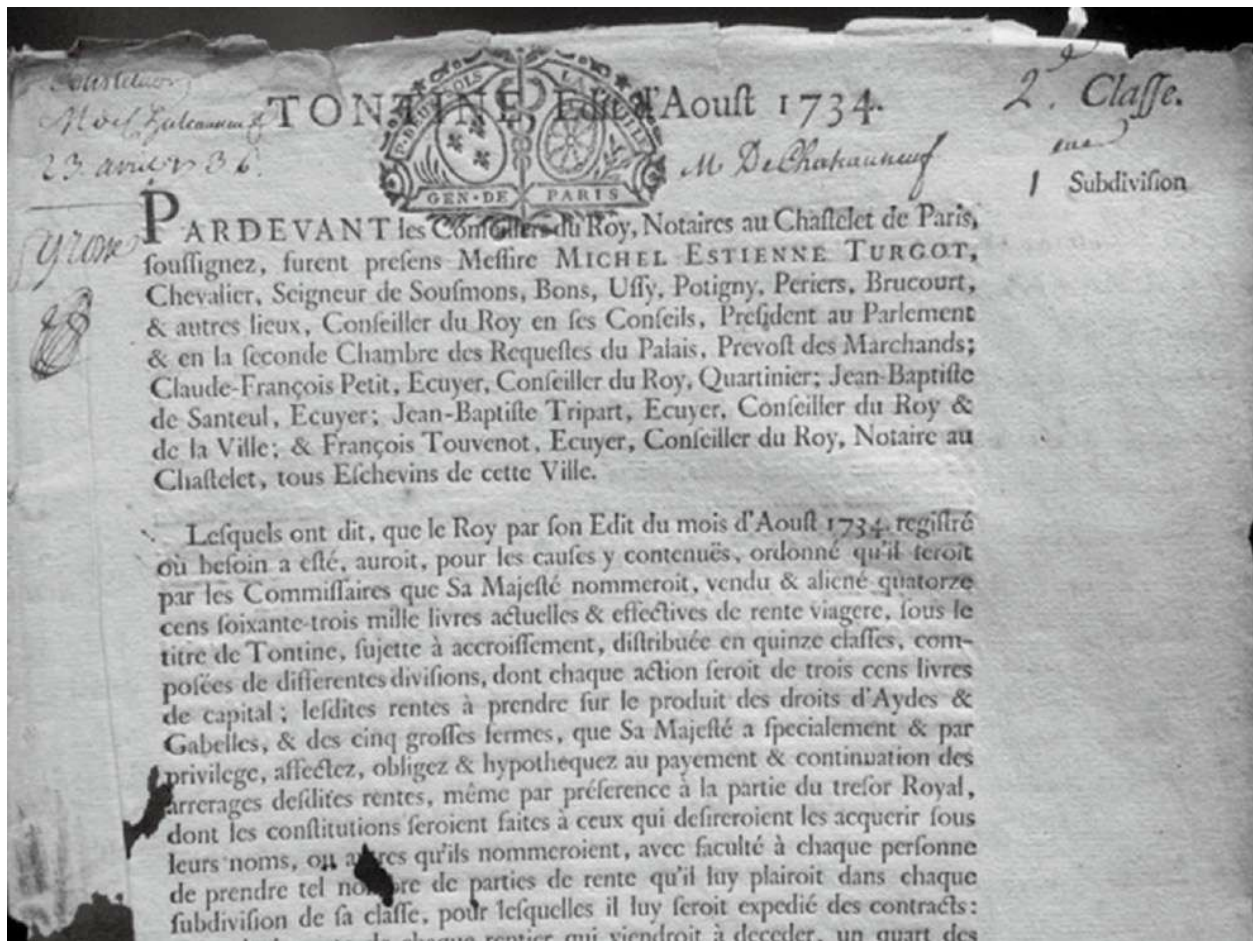 TONTINE, Edit d'Aouſt 1734.
2.e Claſſe.
M DeChateauneuf
23 1736.
1 ere Subdiviſion
GEN·DE PARIS
PARDEVANT les Conſeillers du Roy, Notaires au Chaſtelet de Paris,
ſouſſignez, furent preſens Meſſire MICHEL ESTIENNE TURGOT,
Chevalier, Seigneur de Souſmons, Bons, Uſſy, Potigny, Periers, Brucourt,
& autres lieux, Conſeiller du Roy en ſes Conſeils, Preſident au Parlement
& en la ſeconde Chambre des Requeſtes du Palais, Prevoſt des Marchands;
Claude-François Petit, Ecuyer, Conſeiller du Roy, Quartinier; Jean-Baptiſte
de Santeul, Ecuyer; Jean-Baptiſte Tripart, Ecuyer, Conſeiller du Roy &
de la Ville; & François Touvenot, Ecuyer, Conſeiller du Roy, Notaire au
Chaſtelet, tous Eſchevins de cette Ville.
Leſquels ont dit, que le Roy par ſon Edit du mois d'Aouſt 1734. regiſtré
où beſoin a eſté, auroit, pour les cauſes y contenuës, ordonné qu'il ſeroit
par les Commiſſaires que Sa Majeſté nommeroit, vendu & aliené quatorze
cens ſoixante-trois mille livres actuelles & effectives de rente viagere, ſous le
titre de Tontine, ſujette à accroiſſement, diſtribuée en quinze claſſes, com-
poſées de differentes diviſions, dont chaque action ſeroit de trois cens livres
de capital; leſdites rentes à prendre ſur le produit des droits d'Aydes &
Gabelles, & des cinq groſſes fermes, que Sa Majeſté a ſpecialement & par
privilege, affectez, obligez & hypothequez au payement & continuation des
arrerages deſdites rentes, même par préference à la partie du treſor Royal,
dont les conſtitutions ſeroient faites à ceux qui deſireroient les acquerir ſous
leurs noms, ou autres qu'ils nommeroient, avec faculté à chaque perſonne
de prendre tel nombre de parties de rente qu'il luy plairoit dans chaque
ſubdiviſion de ſa claſſe, pour leſquelles il luy ſeroit expedié des contracts:
de chaque rentier qui viendroit à deceder, un quart des